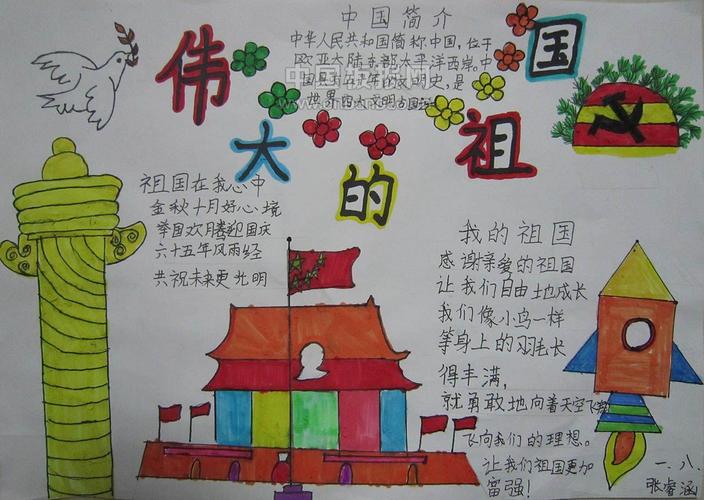 中国简介
中华人民共和国简称中国,位于
欧亚大陆东部太平洋西岸。中
国 五千年的文明史,是
世界四大文明古国
伟大的祖国
祖国在我心中
金秋十月好心境
举国欢腾迎国庆
六十五年风雨经
共祝未来更光明
我的祖国
感谢亲爱的祖国
让我们自由地成长
我们像小鸟一样
等身上的羽毛长
得丰满,
就勇敢地向着天空飞翔
飞向我们的理想。
让我们祖国更加
富强!
一.八.
张睿涵